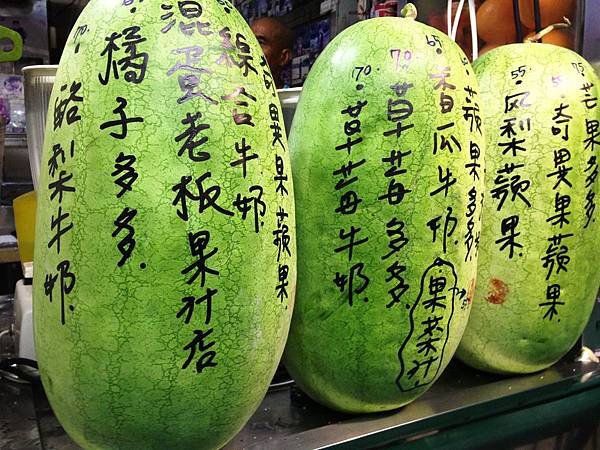 酪梨牛奶
70.
橘子多多.
70.
混蛋老板果汁店
綜合牛奶.
奇異果蘋果
草莓牛奶.
70.
草莓多多.
70.
香瓜牛奶.
65
果菜汁
蘋果多多
鳳梨蘋果.
55.
奇異果蘋果
55.
芒果多
75.